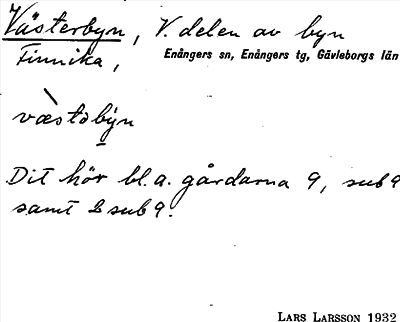 Västerbyn, V. delen av byn
Finnika, Enångers sn, Enångers tg, Gävleborgs län
væ̀stəbyn
Dit hör bl.a. gårdarna 9, sub 9
samt 2 sub 9.
LARS LARSSON 1932